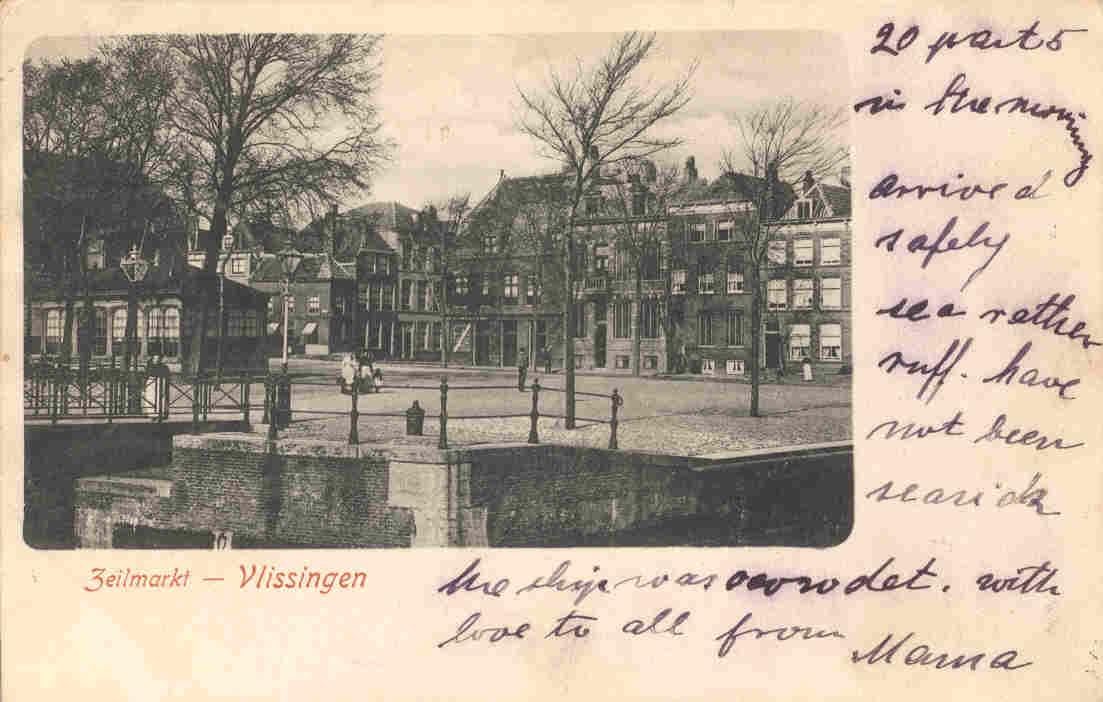 20 past 5
in the morning
arrived
safely
sea rather
ruff. have
not been
seasick
the ship was crowdet. with
love to all from
Mama
Zeilmarkt — Vlissingen